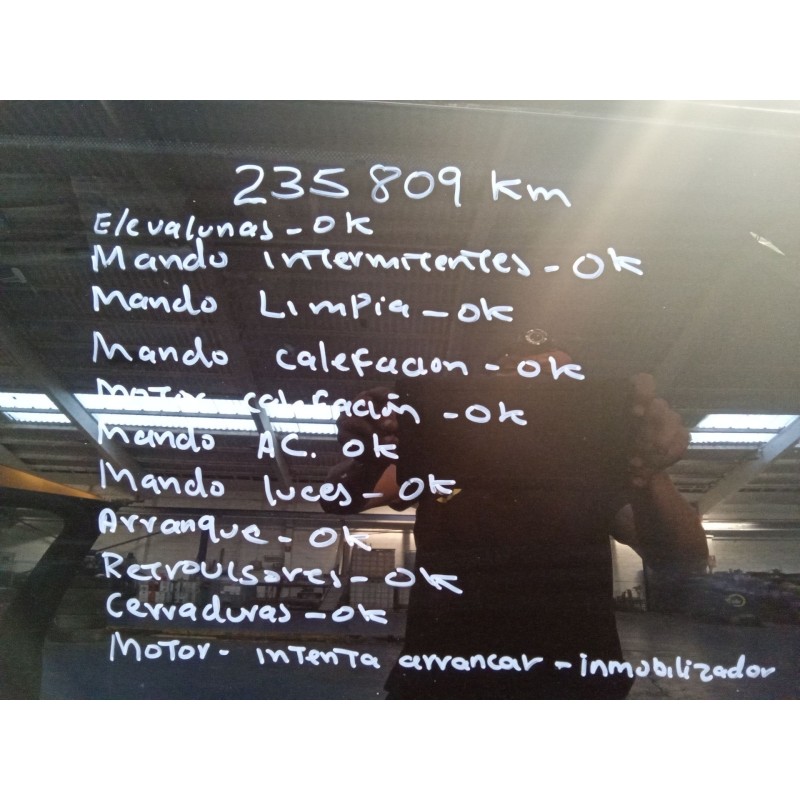 235 809 Km
Elevalunas - OK
Mando intermitentes - OK
Mando Limpia - OK
Mando calefacion - OK
Motor calefación - OK
Mando AC. OK
Mando luces - OK
Arranque - OK
Retroulsores - OK
Cerraduras - OK
Motor - intenta arrancar - inmobilizador